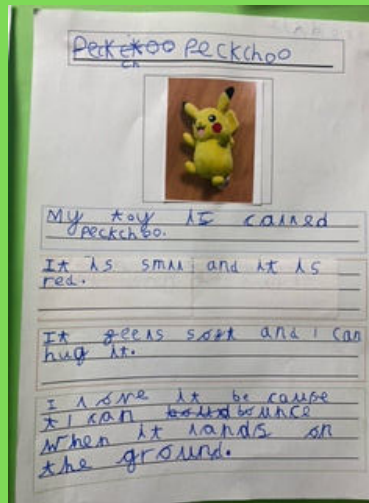 Peckchoo
My toy is called
Peckchoo.
It is small and it is
red.
It feels soft and I can
hug it.
I love it be cause
it can bounce
when it lands on
the ground.